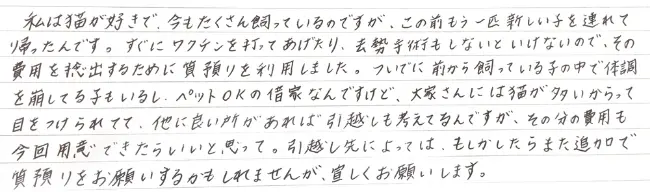 私は猫が好きで、今もたくさん飼っているのですが、この前もう一匹新しい子を連れて
帰ったんです。すぐにワクチンを打ってあげたり、去勢手術もしないといけないので、その
費用を捻出するために質預りを利用しました。ついでに前から飼っている子の中で体調
を崩してる子もいるし、ペットOKの借家なんですけど、大家さんには猫が多いからって
目をつけられてて、他に良い所があれば引越しも考えてるんですが、その分の費用も
今回用意できたらいいと思って。引越し先によっては、もしかしたらまた追加で
質預りをお願いするかもしれませんが、宜しくお願いします。